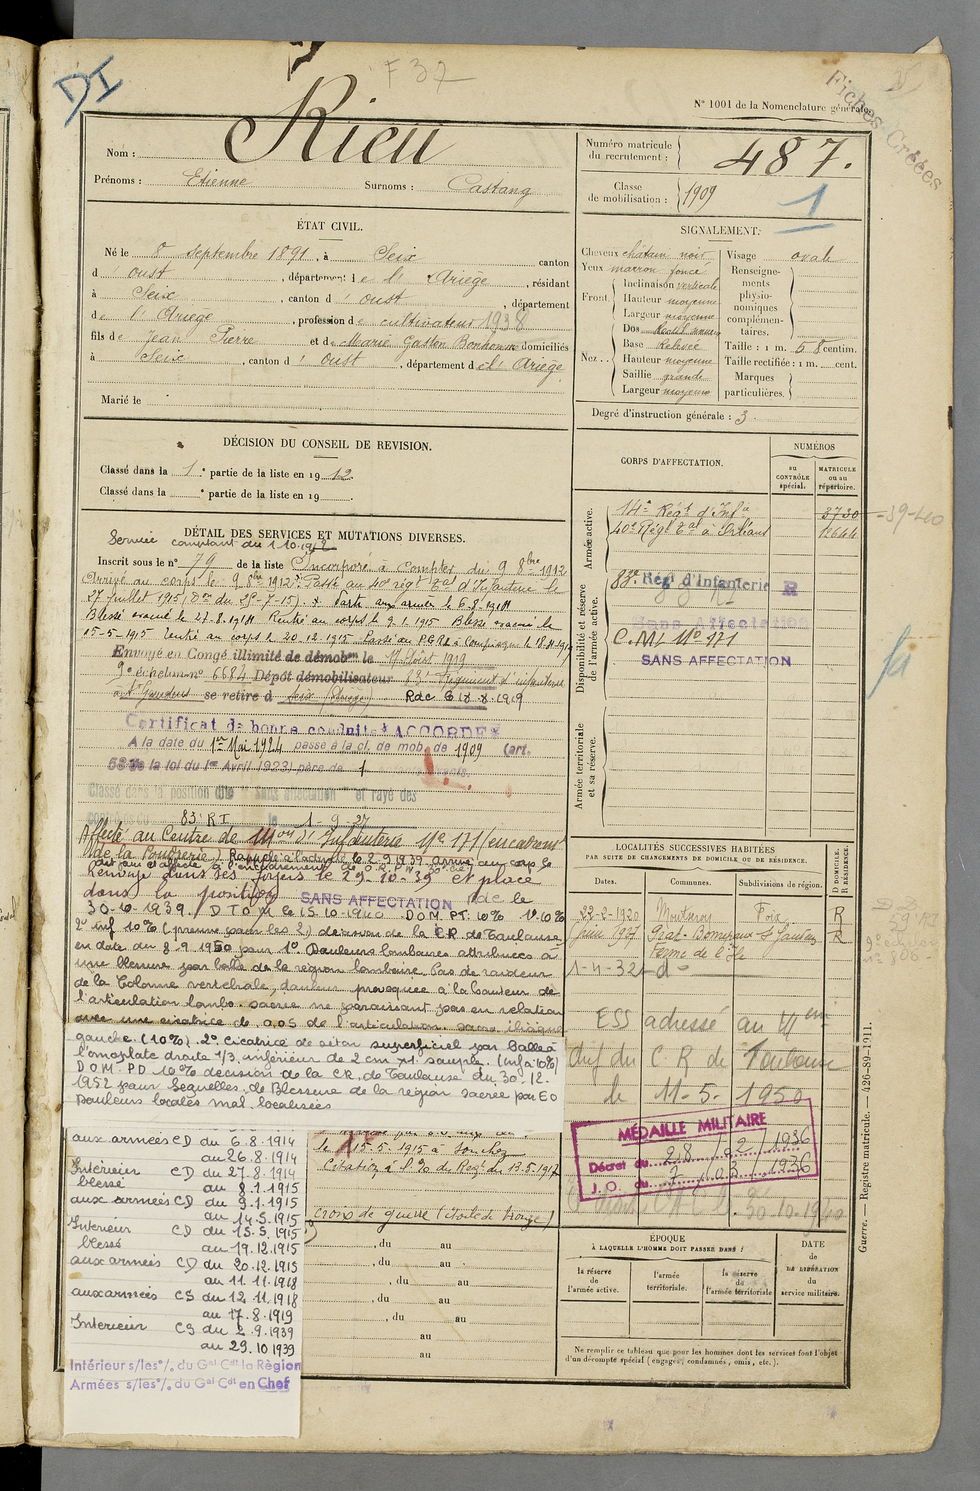 DI
F 37
Fiches Créées
N° 1001 de la Nomenclature générale.
Nom : Rieu
Prénoms : Etienne Surnoms : Castang
Numéro matricule du recrutement : 487.
Classe de mobilisation : 1909
1
ÉTAT CIVIL.
Né le 8 septembre 1891, à Seix canton
d'oust, département de l'Ariège, résidant
à Seix, canton d'oust, département
de l'Ariège, profession de cultivateur 1938
fils de Jean Pierre et de Marie Gaston Bonhomme domiciliés
à Seix, canton d'oust, département de l'Ariège
Marié le
SIGNALEMENT.
Cheveux châtain noir
Yeux marron foncé
Front. Inclinaison verticale
Hauteur moyenne
Largeur moyenne
Nez. Dos
Base relevée
Hauteur moyenne
Saillie grande
Largeur moyenne
Visage ovale
Renseignements physionomiques complémentaires.
Taille : 1 m. 58 centim.
Taille rectifiée : 1 m. cent.
Marques particulières.
Degré d'instruction générale : 3
DÉCISION DU CONSEIL DE REVISION.
Classé dans la 1e partie de la liste en 1912
Classé dans la e partie de la liste en 19
CORPS D'AFFECTATION.
NUMÉROS
au CONTRÔLE spécial.
MATRICULE ou au répertoire.
Armée active.
14e Régt d'Infie 3730
40e Régt à Orléans 12644
39-40
Disponibilité et réserve de l'armée active.
83e Rég' d'Infanterie R
Sans Affectation
C.M.I. N° 171
SANS AFFECTATION
Armée territoriale et sa réserve.
DÉTAIL DES SERVICES ET MUTATIONS DIVERSES.
Service comptant du 1.10.1912
Inscrit sous le n° 79 de la liste Incorporé à compter du 9 8bre 1912
Arrivé au corps le 9 8bre 1912. Passé au 40e régt d'Infanterie le
27 Juillet 1915 (On du 25-7-15). Parti aux armées le 6-8-1914
Blessé évacué le 27.8.1914 Rentré au corps le 9.1.1915 Blessé évacué le
15-5-1915 Rentré au corps le 20.12.1915
Envoyé en Congé illimité de démobon le 17 Août 1919
9e échelon n° 6684 Dépôt démobilisateur 83e Régiment d'infanterie
à St Gaudens se retire à Seix (Ariège) Rdc 1919
Certificat de bonne conduite "ACCORDÉ"
A la date du 1er Mai 1924 passé à la cl. de mob. de 1909 (art.
58 de la loi du 1er Avril 1923) père de 1
Classé dans la position dite " sans affectation " et rayé des
83 RI le 1-9-27
Affecté au Centre de Mon d'Infanterie N° 171 (encadremt
de la Poudrerie) Rappelé à l'activité le 2.9.1939 arrivé au corps le
Renvoyé dans ses foyers le 29-10-39 et placé
dans la position SANS AFFECTATION Rdc le
30-10-1939. D.T.O.M. le 15.10.1940 D.O.M. PT. 10% 1° 10%
2° inf 10% (prenne pour les 2) décision de la C.R. de Toulouse
en date du 8.9.1950 pour 1° Douleurs lombaires attribuées à
une blessure par balle de la région lombaire. Pas de raideur
de la Colonne vertébrale, douleur provoquée à la hauteur de
l'articulation lombo-sacrée ne paraissant pas en relation
avec une cicatrice de 0,05 de l'articulation sacro iliaque
gauche. (10%) 2° Cicatrice de séton superficiel par Balle à
l'omoplate droite 1/3 inférieur de 2 cm x 1 souple. (Inf à 10%)
D.O.M. PD 10% décision de la C.R. de Toulouse du 30.12.
1952 pour Séquelles de Blessure de la région sacrée par EO
Douleurs locales mal localisées
aux armées CD du 6.8.1914
au 26.8.1914
Intérieur CD du 27.8.1914
blessé au 8.1.1915
aux armées CD du 9.1.1915
au 14.5.1915
Intérieur CD du 15.5.1915
blessé au 19.12.1915
aux armées CD du 20.12.1915
au 11.11.1918
aux armées CS du 12.11.1918
au 17.8.1919
Intérieur CS du 2.9.1939
au 29.10.1939
Intérieur s/les°/. du Gal Cdt la Région
Armées s/les°/. du Gal Cdt en Chef
le 15-5-1915 à Souchez
Citation à l'O. du Régt du 13.5.1917
Croix de guerre (étoile de bronze)
, du au
, du au
, du au
, du au
au
au
LOCALITÉS SUCCESSIVES HABITÉES
PAR SUITE DE CHANGEMENTS DE DOMICILE OU DE RÉSIDENCE.
D DOMICILE. R RÉSIDENCE.
Dates. Communes. Subdivisions de région.
22-2-1920 Foix R
Juin 1927 St Gaudens R
Ferme de l'Ile
1-4-32 -d°-
ESS adressé au
chef du C R de Toulouse
le 11-5-1950
MÉDAILLE MILITAIRE
Décret du 28/02/1936
J. O. du 7/03/1936
30-10-1940
ÉPOQUE
À LAQUELLE L'HOMME DOIT PASSER DANS :
la réserve de l'armée active.
l'armée territoriale.
la réserve de l'armée territoriale
DATE de LA LIBÉRATION du service militaire.
Ne remplir ce tableau que pour les hommes dont les services font l'objet
d'un décompte spécial (engagés, condamnés, omis, etc.).
Guerre. — Registre matricule. — 426-89-1911.